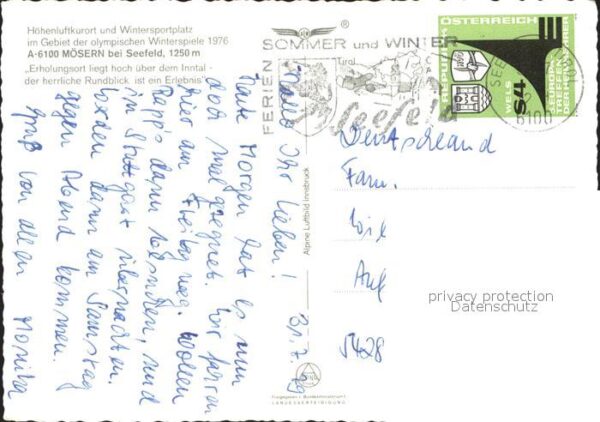 Höhenluftkurort und Wintersportplatz
im Gebiet der olympischen Winterspiele 1976
A-6100 MÖSERN bei Seefeld, 1250 m
„Erholungsort liegt hoch über dem Inntal -
der herrliche Rundblick ist ein Erlebnis"
Hallo Ihr Lieben!
31.7.79
Heute Morgen hat es nun
doch mal geregnet. Wir fahren
hier am Freitag weg. Wollen
Rapp's dann besuchen, und
in Stuttgart übernachten.
Werden dann am Samstag
gegen Abend kommen.
Gruß von allen Monika
Alpine Luftbild Innsbruck
LANDESVERTEIDIGUNG
FERIEN
SOMMER und WINTER
Tirol
Seefeld
REPUBLIK ÖSTERREICH
S4
WELS
EUROPA
TREFFEN
DER HEIMKEHRER
SEEF
6100
Deutschland
Fam.
Auf
5428
privacy protection
Datenschutz